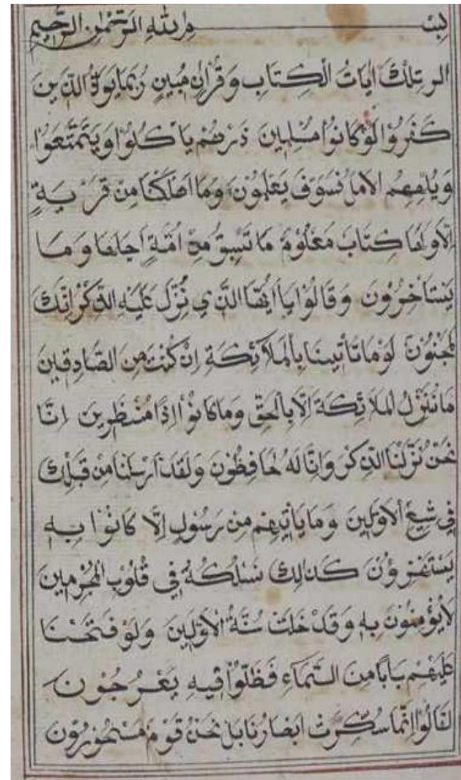 بسم الله الرحمن الرحيم
الر تلك ايات الكتاب وقران مبين ربما يود الذين
كفروا لو كانوا مسلمين ذرهم ياكلوا ويتمتعوا
ويلههم الامل فسوف يعلمون وما اهلكنا من قرية
الا ولها كتاب معلوم ما تسبق من امة اجلها وما
يستاخرون وقالوا يا ايها الذي نزل عليه الذكر انك
لمجنون لو ما تاتينا بالملائكة ان كنت من الصادقين
ما ننزل الملائكة الا بالحق وما كانوا اذا منظرين انا
نحن نزلنا الذكر وانا له لحافظون ولقد ارسلنا من قبلك
في شيع الاولين وما ياتيهم من رسول الا كانوا به
يستهزؤن كذلك نسلكه في قلوب المجرمين
لا يؤمنون به وقد خلت سنة الاولين ولو فتحنا
عليهم بابا من السماء فظلوا فيه يعرجون
لقالوا انما سكرت ابصارنا بل نحن قوم مسحورون